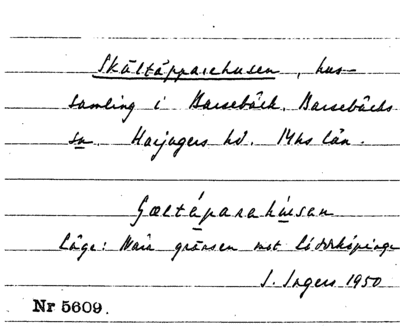 Skältäpparehusen, hus-
samling i Barsebäck, Barsebäcks
sn. Harjagers hd. Mhs län.
Gæltáparahúsan
Läge: Nära gränsen mot Löddeköpinge
I. Ingers 1950
Nr 5609.